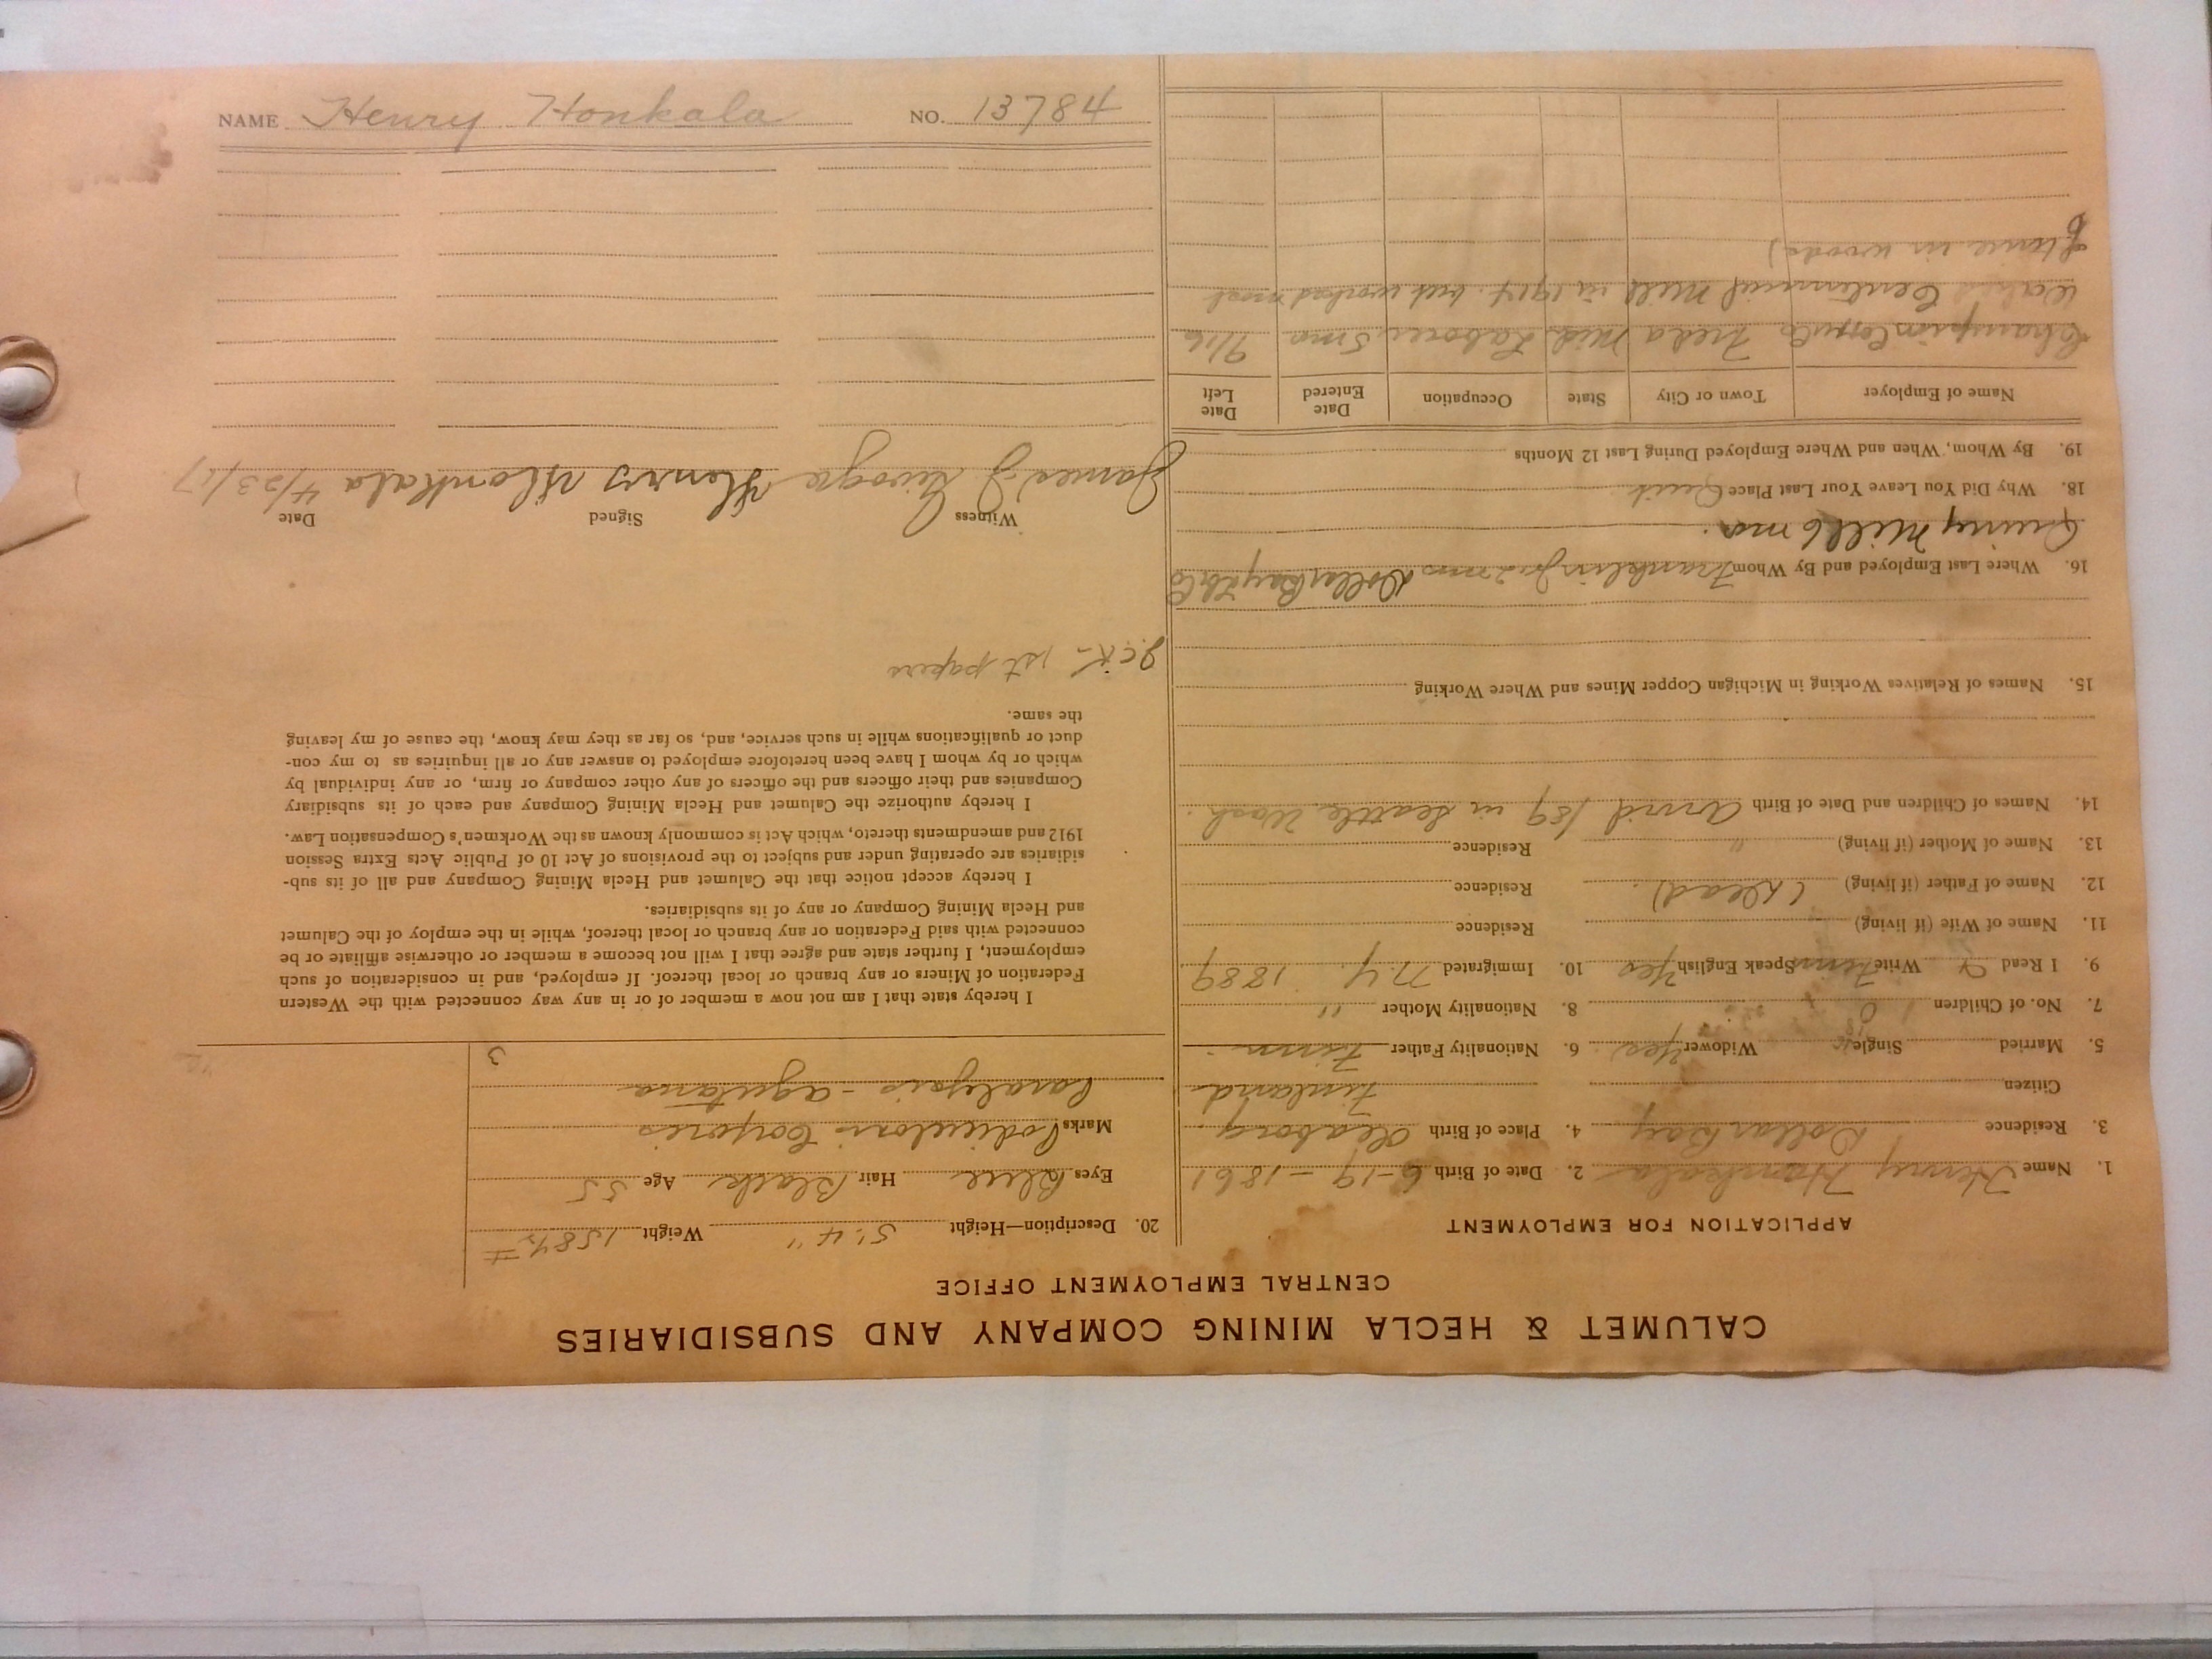 NAME Henry Honkala NO. 13784
CALUMET & HECLA MINING COMPANY AND SUBSIDIARIES
CENTRAL EMPLOYMENT OFFICE
APPLICATION FOR EMPLOYMENT
1. Name Henry Honkala 2. Date of Birth 6-19-1861
3. Residence Dollar Bay 4. Place of Birth Uleaborg
Citizen Finland
5. Married Single Widower Yes 6. Nationality Father Finn
7. No. of Children 8. Nationality Mother "
9. I Read Write Finn Speak English Yes 10. Immigrated N.Y. 1889
11. Name of Wife (if living) Residence
12. Name of Father (if living) (Dead) Residence
13. Name of Mother (if living) " Residence
14. Names of Children and Date of Birth Arvid 189 in Seattle Wash.
15. Names of Relatives Working in Michigan Copper Mines and Where Working
16. Where Last Employed and By Whom Franklin Jr 2 mos Dollar Bay
Quincy Mill 6 mos.
18. Why Did You Leave Your Last Place Quit
19. By Whom, When and Where Employed During Last 12 Months
Name of Employer Town or City State Occupation Date Entered Date Left
Champion Freda Mich Laborer 5 mo 9/16
Centennial Mill in 1914 but worked most
time in woods)
20. Description—Height 5' 4" Weight 158 1/2 #
Eyes Blue Hair Black Age 55
Marks
3
I hereby state that I am not now a member of or in any way connected with the Western
Federation of Miners or any branch or local thereof. If employed, and in consideration of such
employment, I further state and agree that I will not become a member or otherwise affiliate or be
connected with said Federation or any branch or local thereof, while in the employ of the Calumet
and Hecla Mining Company or any of its subsidiaries.
I hereby accept notice that the Calumet and Hecla Mining Company and all of its sub-
sidiaries are operating under and subject to the provisions of Act 10 of Public Acts Extra Session
1912 and amendments thereto, which Act is commonly known as the Workmen's Compensation Law.
I hereby authorize the Calumet and Hecla Mining Company and each of its subsidiary
Companies and their officers and the officers of any other company or firm, or any individual by
which or by whom I have been heretofore employed to answer any or all inquiries as to my con-
duct or qualifications while in such service, and, so far as they may know, the cause of my leaving
the same.
1st papers
Witness Signed Date
James J Henry Honkala 4/23/17